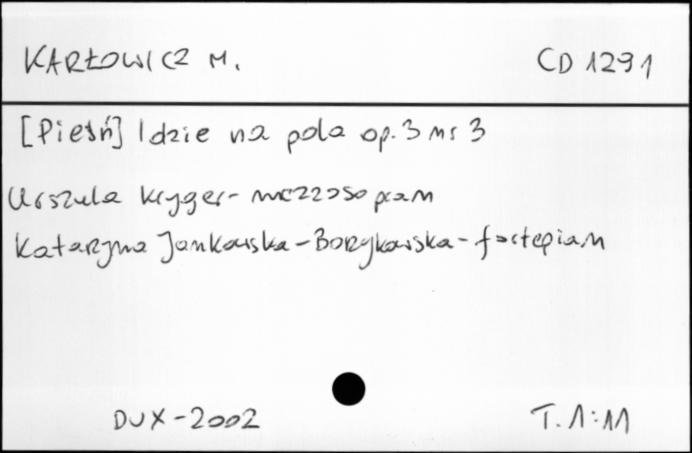 KARŁOWICZ M. CD 1291
[Pieśń] Idzie na pola op. 3 nr 3
Urszula Kryger - mezzosopran
Katarzyna Jankowska-Borzykowska - fortepian
DUX - 2002 T. 1:11